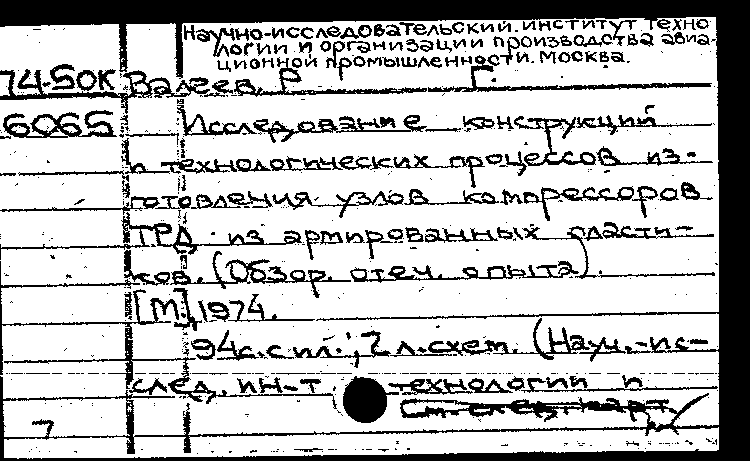 Научно-исследовательский институт техно
логии и организации производства авиа-
ционной промышленности. Москва.
74-50K Валеев, Р Г.
6065 Исследование конструкций
и технологических процессов из-
готовления узлов компрессоров
ТРД из армированных пласти-
ков. (Обзор. отеч. опыта).
[М.], 1974.
94с. с ил.; 2 л. схем. (Науч.-ис-
след. ин-т технологии и
См. след. карт.
7